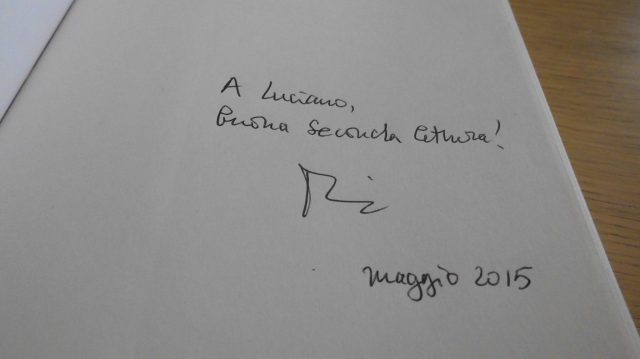 A Luciano,
buona seconda lettura!
maggio 2015